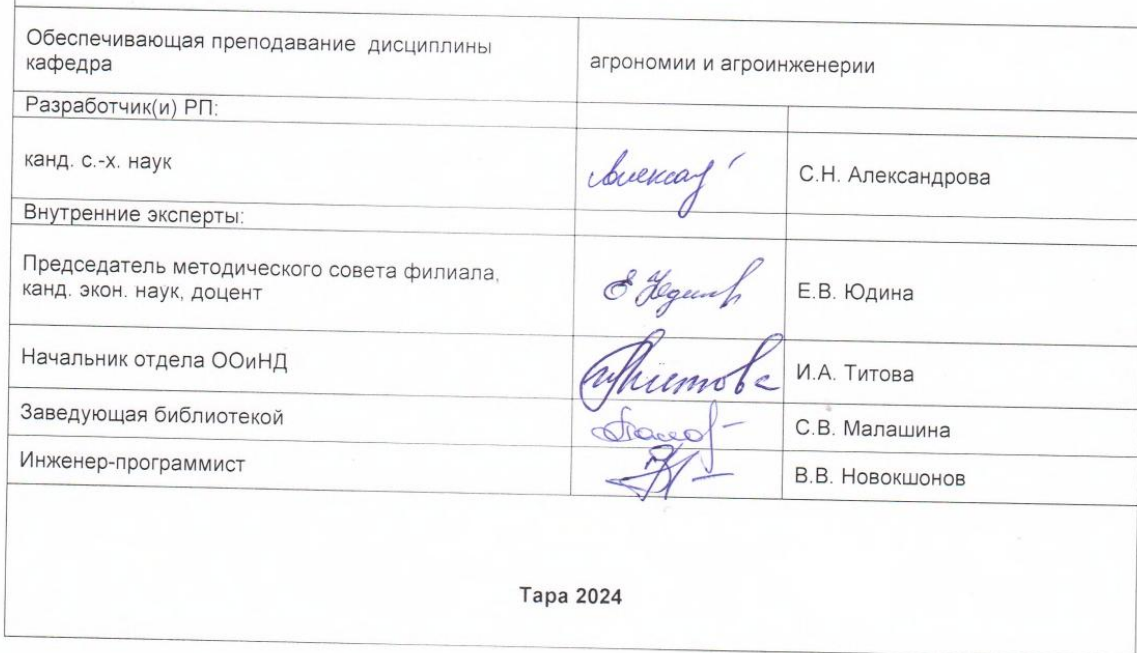 Обеспечивающая преподавание дисциплины
кафедра
агрономии и агроинженерии
Разработчик(и) РП:
канд. с.-х. наук
С.Н. Александрова
Внутренние эксперты:
Председатель методического совета филиала,
канд. экон. наук, доцент
Е.В. Юдина
Начальник отдела ООиНД
И.А. Титова
Заведующая библиотекой
С.В. Малашина
Инженер-программист
В.В. Новокшонов
Тара 2024